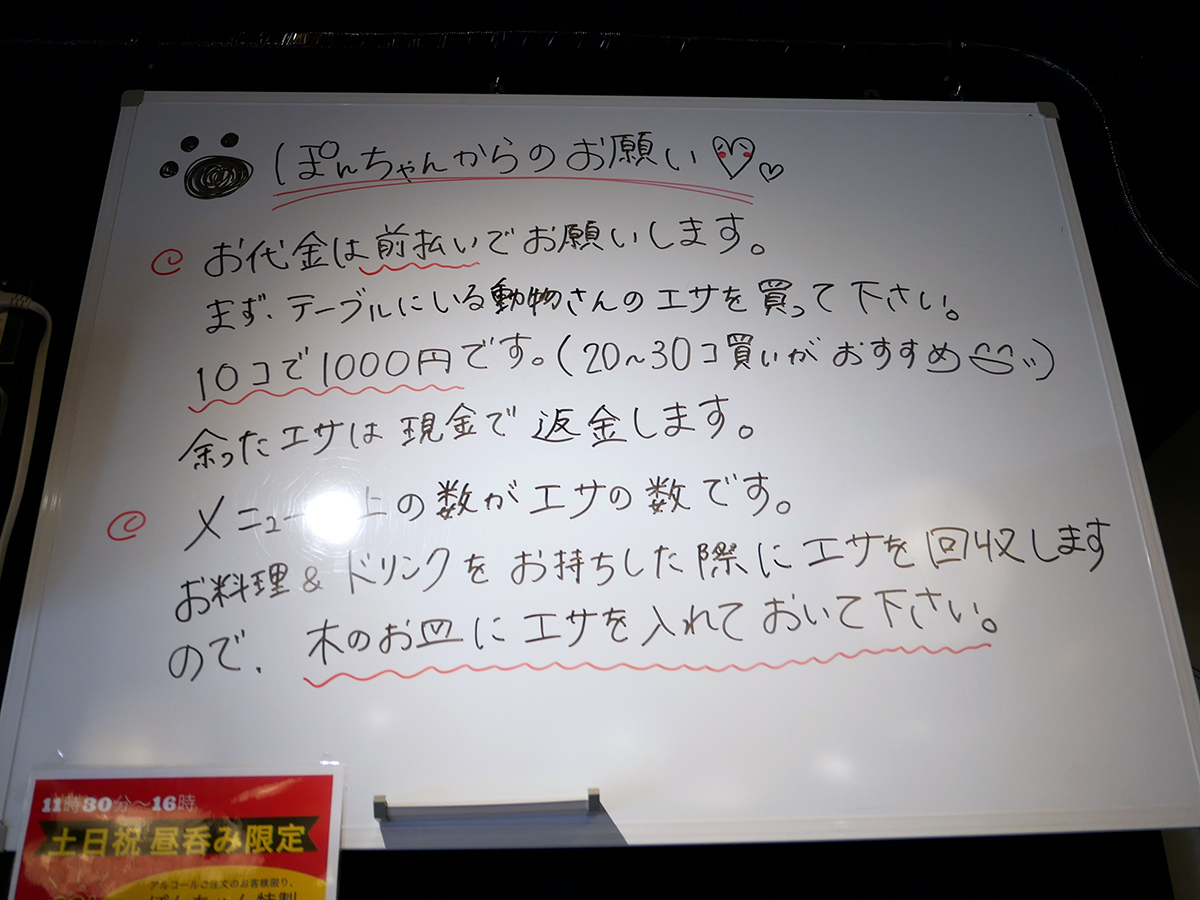 ぽんちゃんからのお願い
お代金は前払いでお願いします。
まず、テーブルにいる動物さんのエサを買って下さい。
10コで1000円です。(20~30コ買いがおすすめ)
余ったエサは現金で返金します。
メニュー上の数がエサの数です。
お料理&ドリンクをお持ちした際にエサを回収します
ので、木のお皿にエサを入れておいて下さい。
11時30分~16時
土日祝 昼呑み限定
アルコールご注文のお客様限り、
ぽんちゃん特製